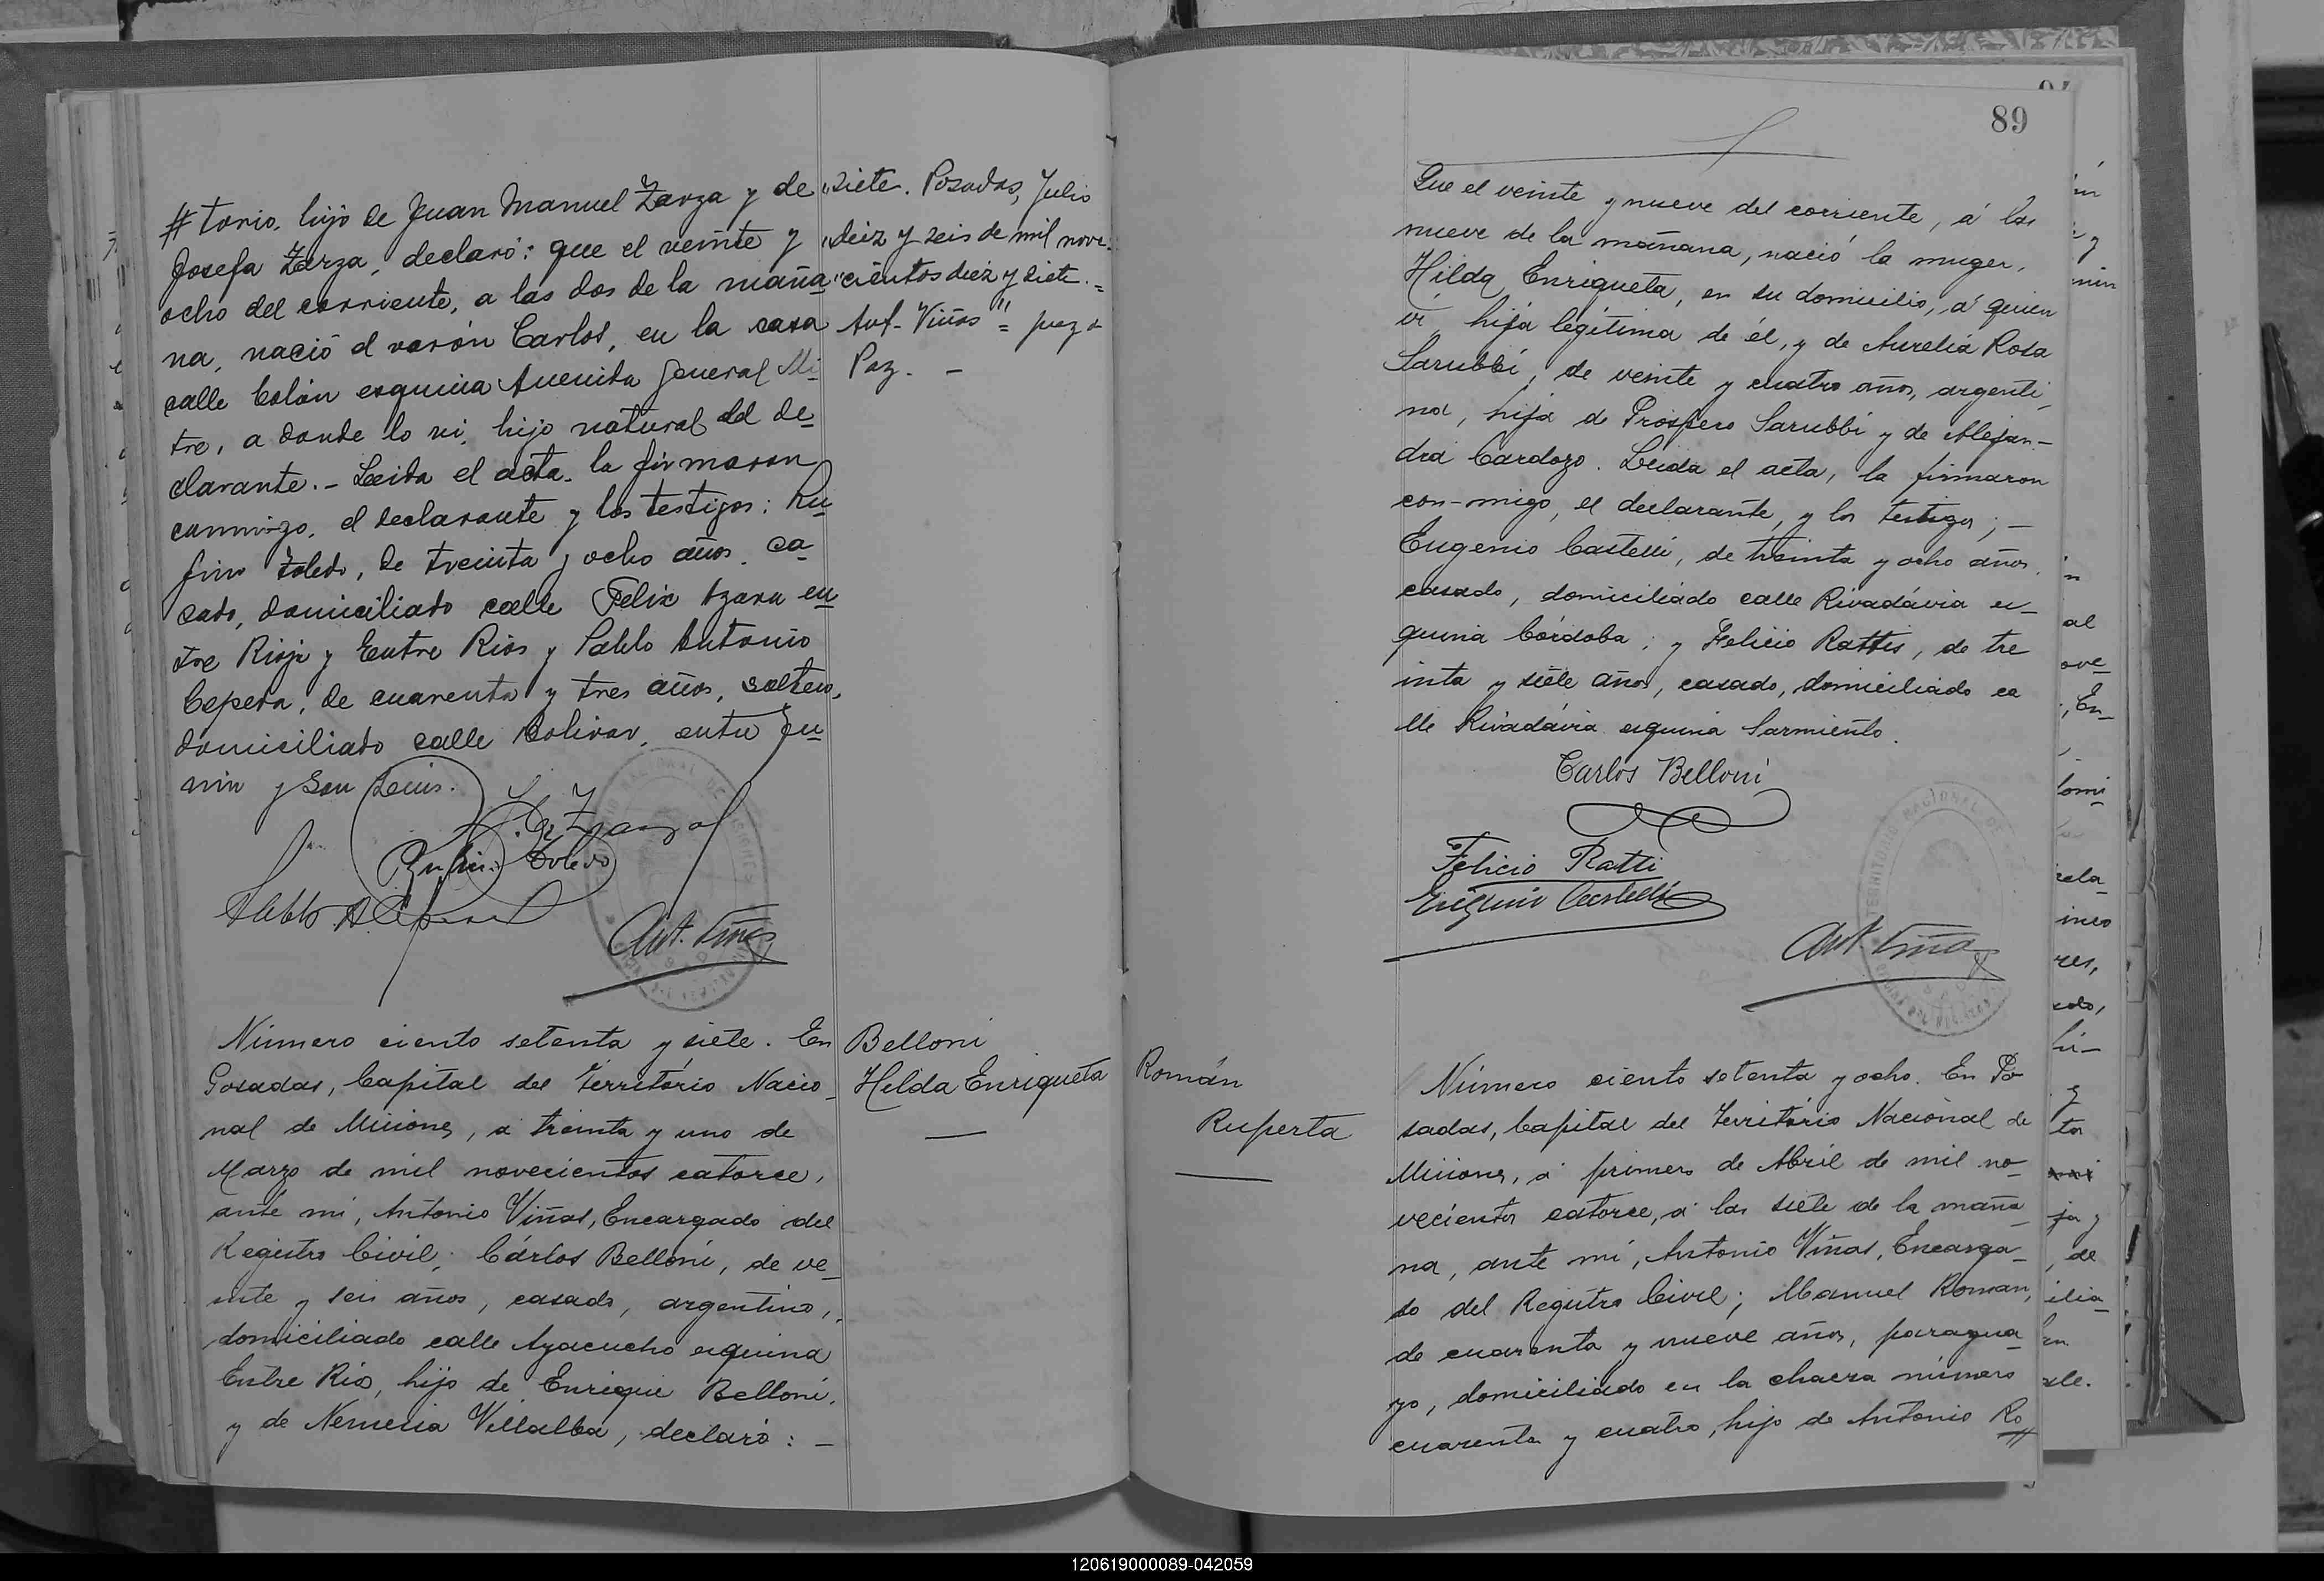 # torio, hijo de Juan Manuel Zarza y de
Josefa Zarza, declaró: que el veinte y
ocho del corriente, a las dos de la maña
na, nació el varón Carlos, en la casa
calle Colón esquina Avenida General Mi
tre, a donde lo vi, hijo natural del de
clarante.- Leida el acta, la firmaron
conmigo, el declarante y los testigos: Ru
fino Toledo, de treinta y ocho años, ca
sado, domiciliado calle Felix Azara en
tre Rioja y Entre Rios y Pablo Antonio
Cepeda, de cuarenta y tres años, soltero,
domiciliado calle Bolivar, entre Ju
nin y San Luis.
Toledo
Pablo A. Cepeda
Ant. Viñas
"siete. Posadas, Julio
"diez y seis de mil nove-
"cientos diez y siete.=
Ant- Viñas"= juez de
Paz. -
Número ciento setenta y siete. En
Posadas, Capital del Territorio Nacio
nal de Misiones, a treinta y uno de
Marzo de mil novecientos catorce,
ante mi, Antonio Viñas, Encargado del
Registro Civil; Cárlos Belloni, de ve
inte y seis años, casado, argentino,
domiciliado calle Ayacucho esquina
Entre Rios, hijo de Enrique Belloni,
y de Nemecia Villalba, declaró: -
Belloni
Hilda Enriqueta
89
Que el veinte y nueve del corriente, á las
nueve de la mañana, nació la muger,
Hilda Enriqueta, en su domicilio, á quien
ví, hija legítima de él, y de Aurelia Rosa
Sarubbi, de veinte y cuatro años, argenti
na, hija de Próspero Sarubbi y de Alejan-
dra Cardozo. Leida el acta, la firmaron
con-migo, el declarante, y los testigos; -
Eugenio Castelli, de treinta y ocho años,
casado, domiciliado calle Rivadávia es-
quina Córdoba; y Felicio Rattis, de tre
inta y siete años, casado, domiciliado ca
lle Rivadávia esquina Sarmiento.
Carlos Belloni
Felicio Ratti
Eugenio Castelli
Ant. Viñas
Román
Ruperta
Número ciento setenta y ocho. En Po
sadas, Capital del Territorio Nacional de
Misiones, á primero de Abril de mil no
vecientos catorce, á las siete de la maña
na, ante mi, Antonio Viñas, Encarga-
do del Registro Civil; Manuel Roman,
de cuarenta y nueve años, paragua
yo, domiciliado en la chacra número
cuarenta y cuatro, hijo de Antonio Ro
120619000089-042059